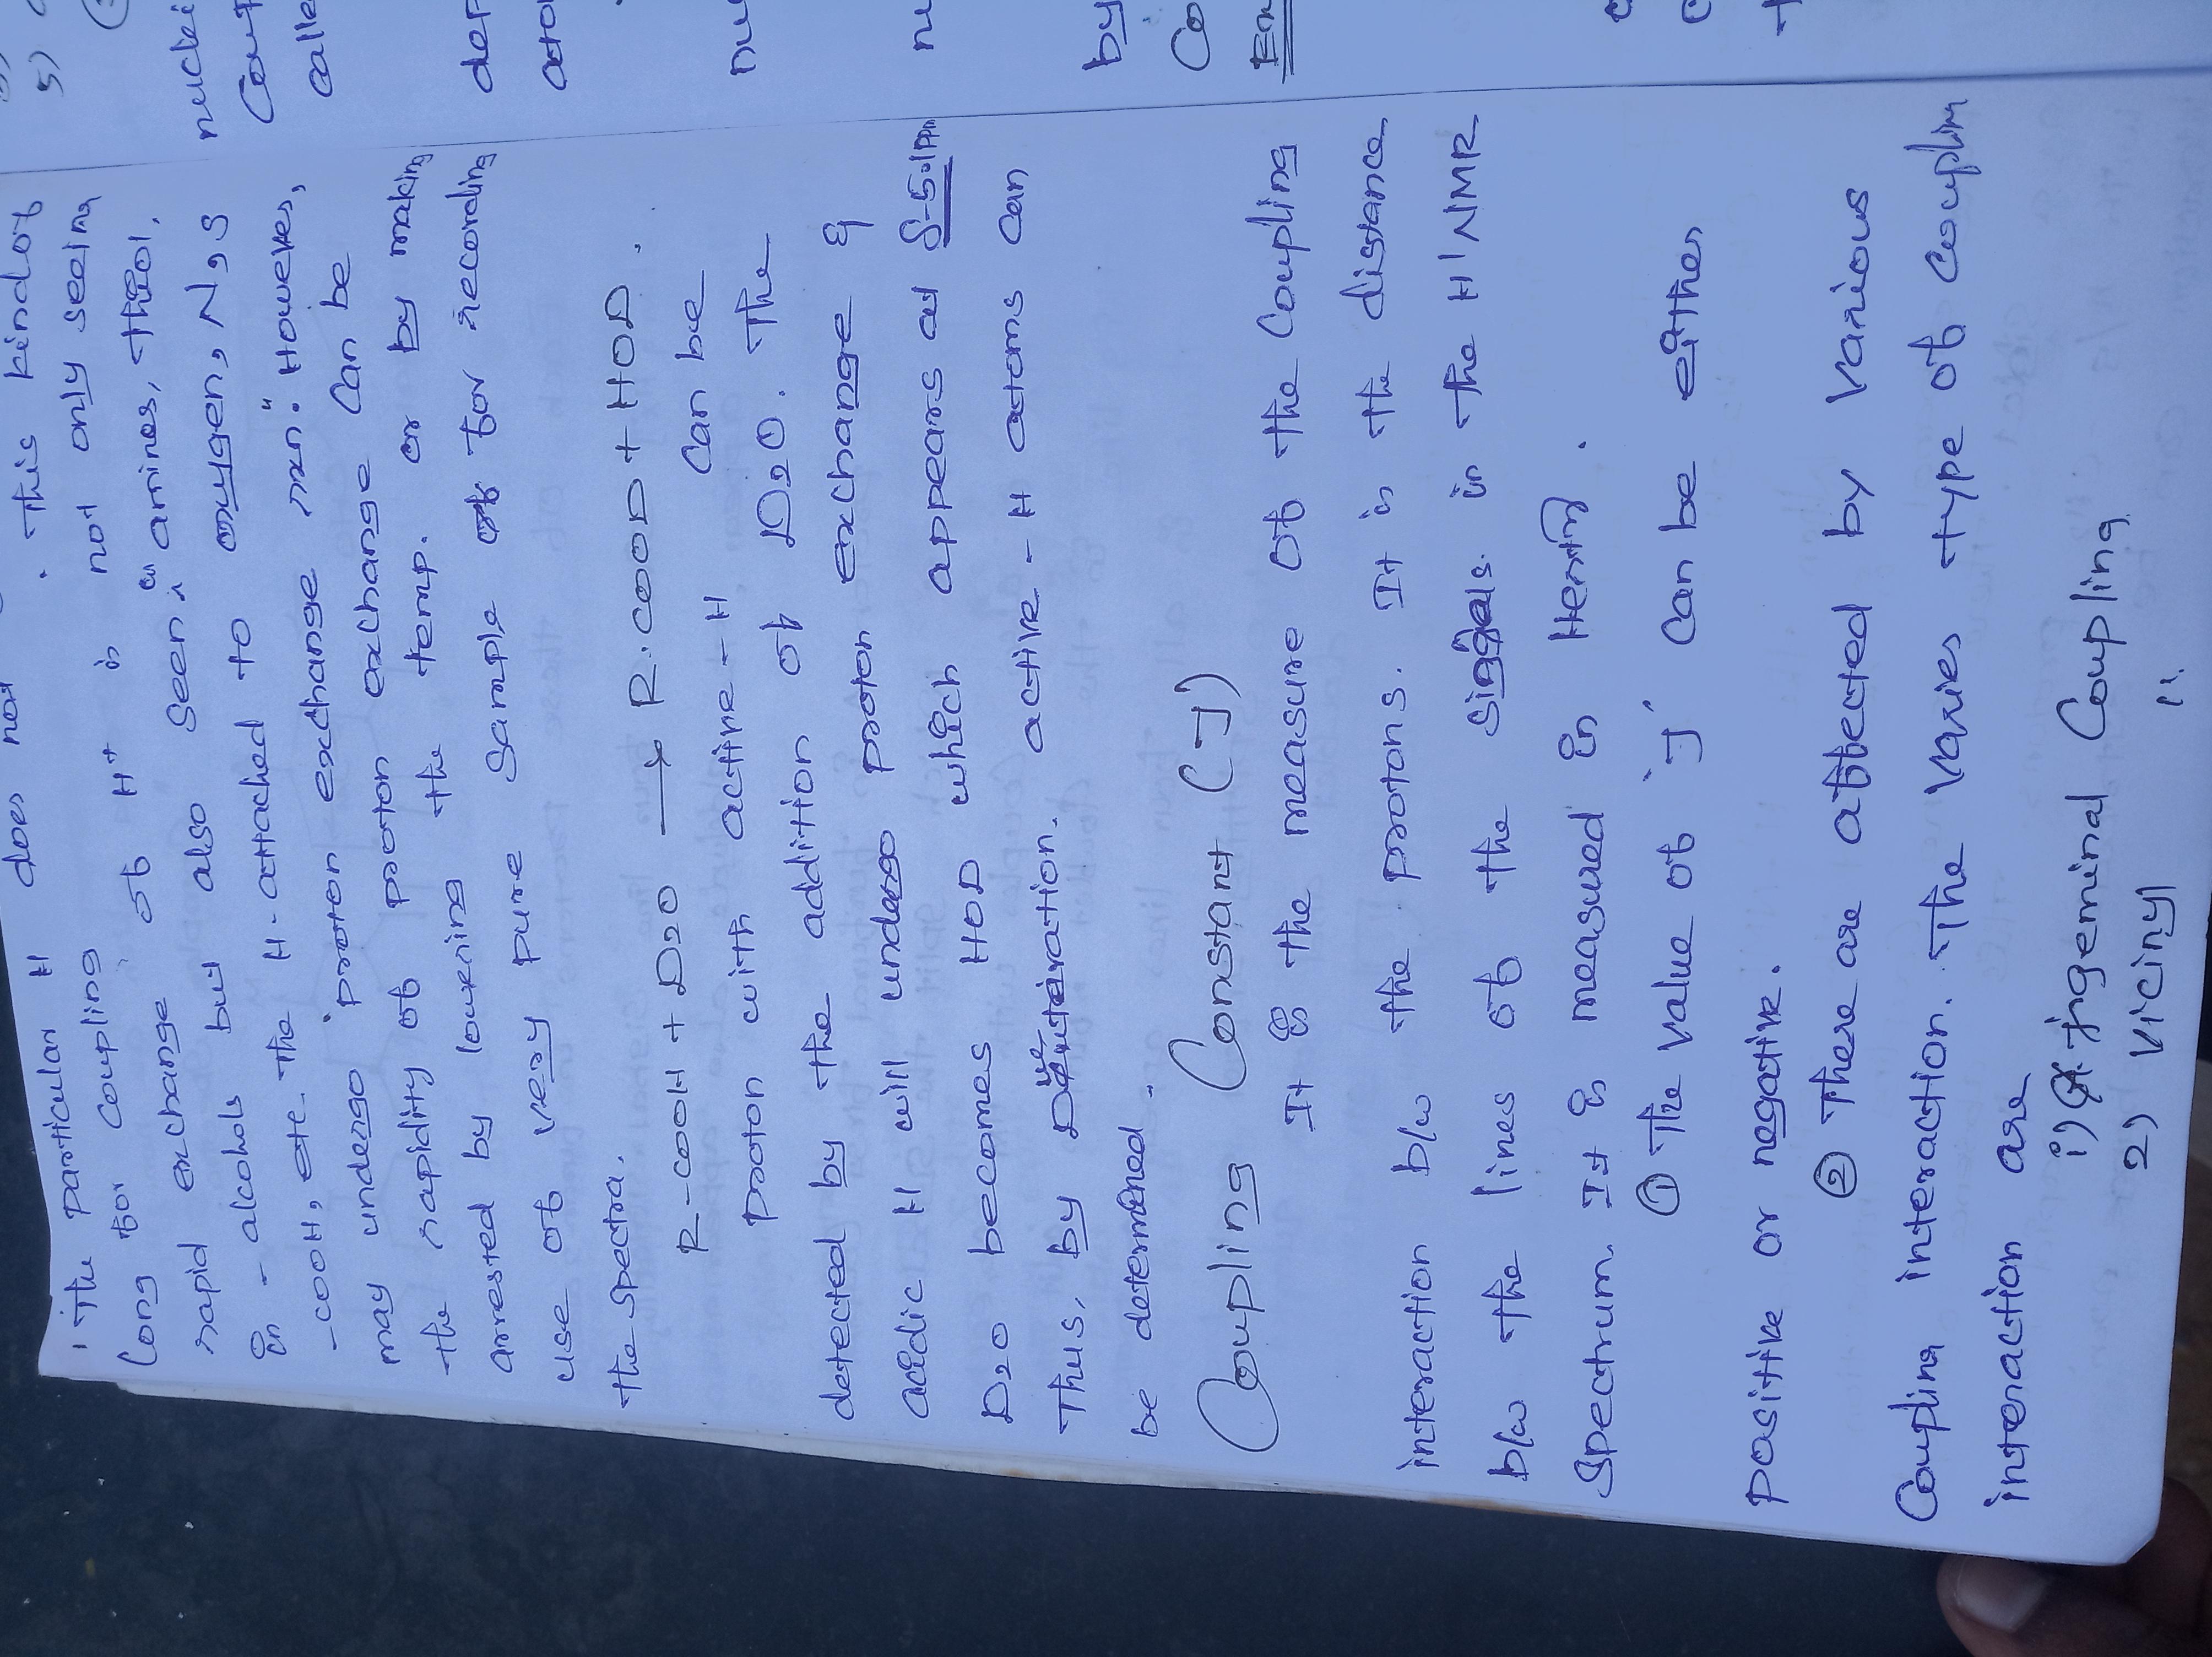 . This kind of
The particular H does not
long for coupling of H+ is not only seeing
rapid exchange also seen in amines, thiol,
in - alcohols but H-attached to oxygen, N, S
-COOH, etc. The "proton exchange rxn." However,
may undergo proton exchange can be
the rapidity of the temp. or by making
arrested by lowering sample of for recording
use of very pure
the spectra.
R-COOH + D2O → R.COOD + HOD.
proton with active-H can be
detected by the addition of D2O. The
acidic H will undergo proton exchange &
D2O becomes HOD which appears at δ-5.1ppm
Thus, by Deuteration. active-H atoms can
be determined.
Coupling Constant (J)
It is the measure of the coupling
interaction b/w the protons. It is the distance
b/w the lines of the signals in the H'NMR
spectrum. It is measured in Hertz.
① The value of 'J' can be either
positive or negative.
② There are affected by various
Coupling interaction. The varies type of couplin
interaction are
i) geminal Coupling
2) vicinyl "
5)
nuclei
Cou
calle
dep
ato
nu
nu
by
Co